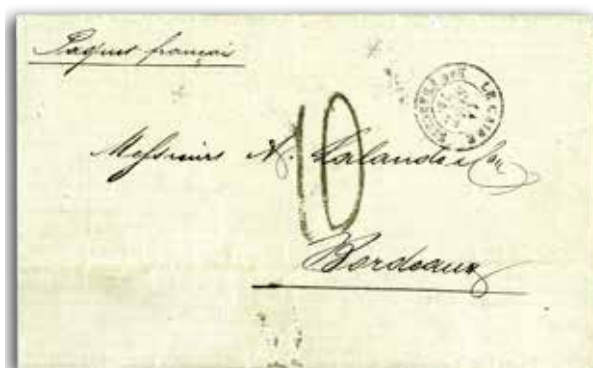 Paquet français
LE CAIRE
10
Messieurs A. Lalande & Cie
Bordeaux